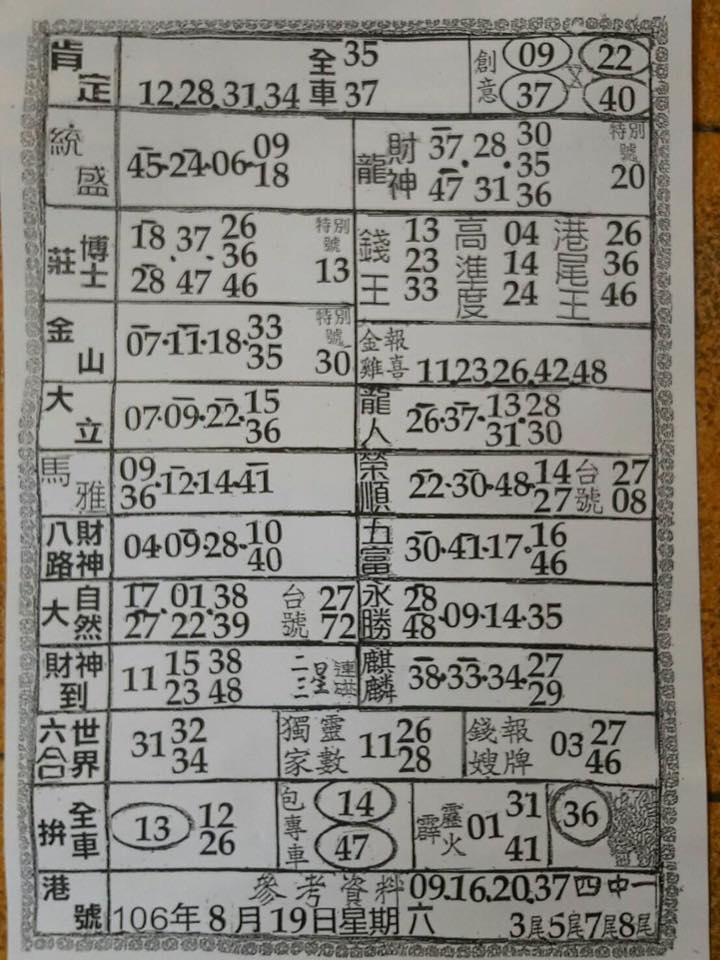 肯定 12.28.31.34 全車 35 37 創意 09 22 37 40
統盛 45·24·06·09 18
龍 財神 37 47 28 31 30 35 36 特別號 20
莊 博士 18 28 37 47 26 36 46 特別號 13
錢王 13 23 33 高準度 04 14 24 港尾王 26 36 46
金山 07·11·18·33 35 特別號 30
金雞報喜 11.23.26.42.48
大立 07·09·22·15 36
龍人 26·37·13 31 28 30
馬雅 09 36·12·14·41
榮順 22·30·48·14 27 台號 27 08
八路財神 04·09·28·10 40
五富 30·41·17·16 46
大自然 17.01.38 27 22 39 台號 27 72
永勝 28 48·09·14·35
財神到 11 15 23 38 48 二三星連碰
麒麟 38·33·34·27 29
六合世界 31 32 34
獨家靈數 11 26 28
錢嫂報牌 03 27 46
拚全車 13 12 26
包專車 14 47
霹靂火 01 31 41
36
港號 參考資料 09.16.20.37四中一
106年8月19日星期六 3尾5尾7尾8尾